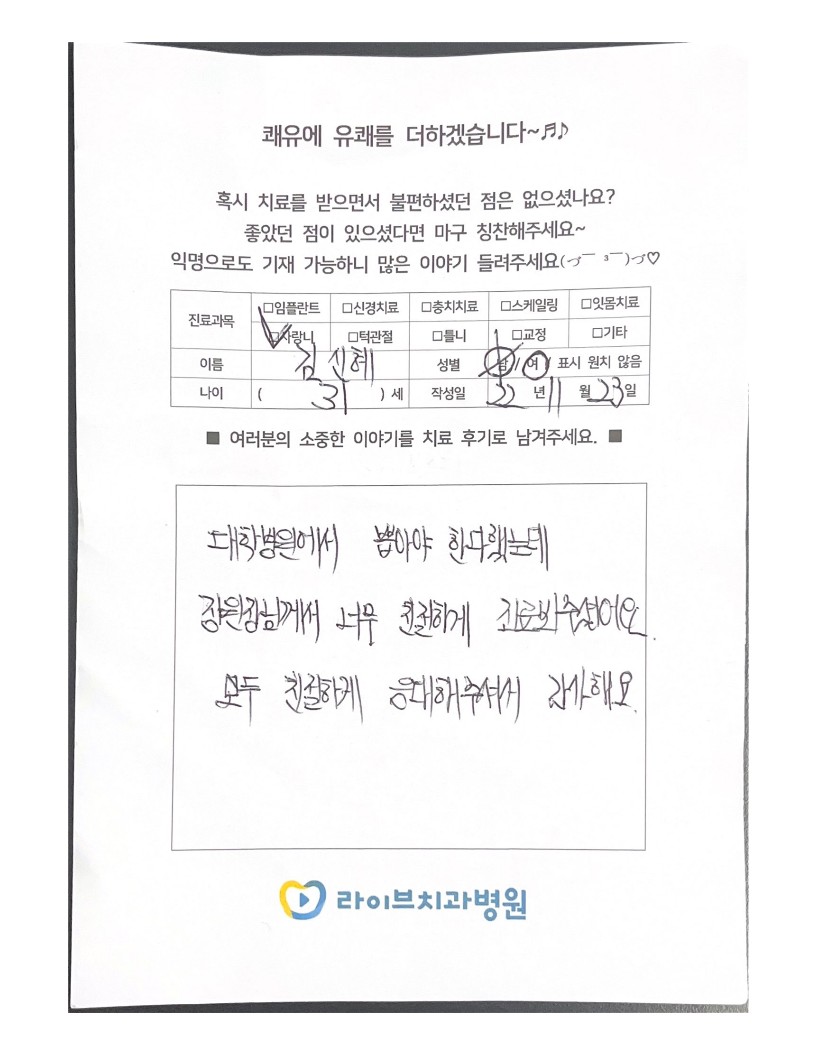 쾌유에 유쾌를 더하겠습니다~♬♪
혹시 치료를 받으면서 불편하셨던 점은 없으셨나요?
좋았던 점이 있으셨다면 마구 칭찬해주세요~
익명으로도 기재 가능하니 많은 이야기 들려주세요(づ￣ ³￣)づ♡
진료과목 □임플란트 □신경치료 □충치치료 □스케일링 □잇몸치료
□사랑니 □턱관절 □틀니 □교정 □기타
이름 김신혜 성별 남 / 여 / 표시 원치 않음
나이 ( 31 ) 세 작성일 22 년 11 월 23 일
■ 여러분의 소중한 이야기를 치료 후기로 남겨주세요. ■
대학병원에서 뽑아야 한다했는데
장원장님께서 너무 친절하게 진료봐주셨어요.
모두 친절하게 응대해주셔서 감사해요.
라이브치과병원